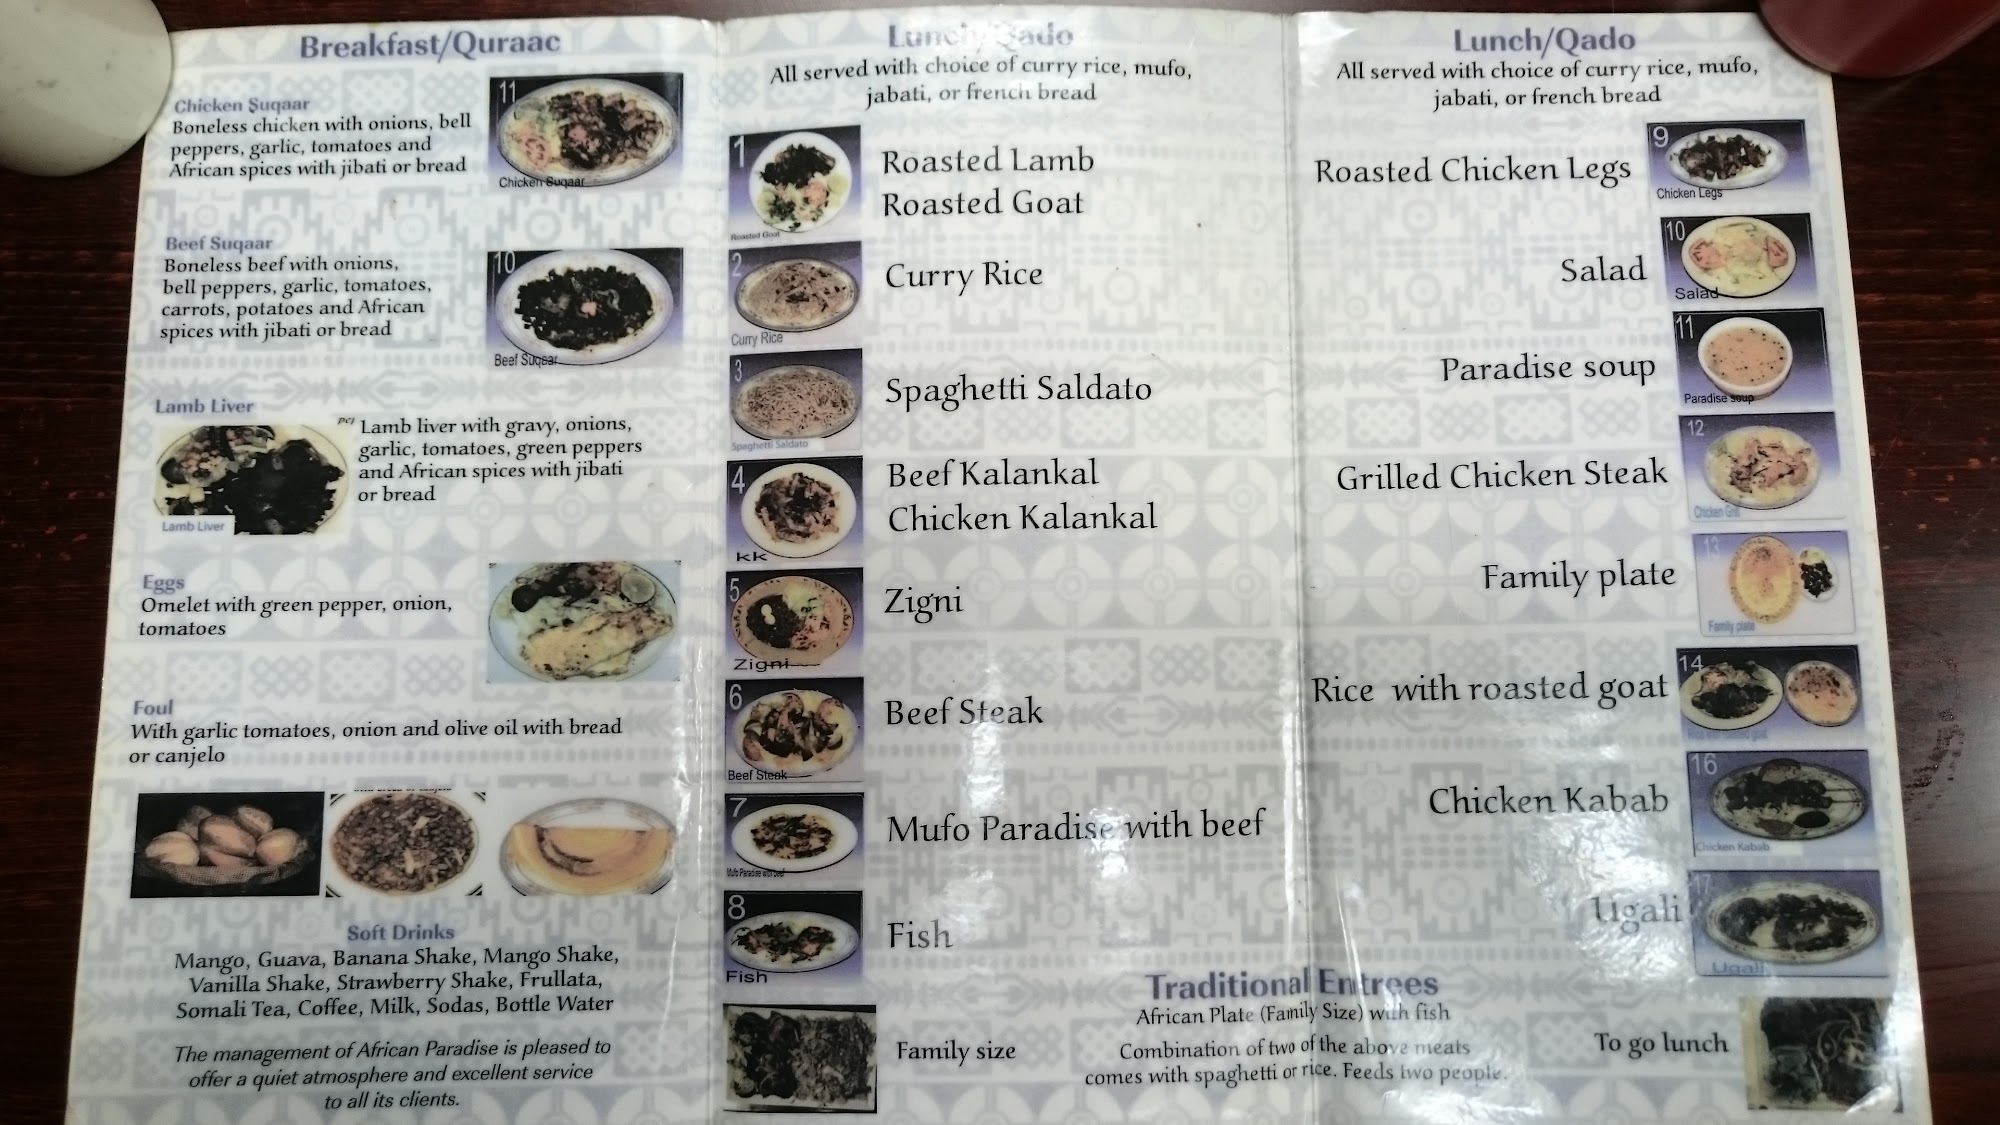 Breakfast/Quraac
Chicken Suqaar
Boneless chicken with onions, bell
peppers, garlic, tomatoes and
African spices with jibati or bread
11
Chicken Suqaar
Beef Suqaar
Boneless beef with onions,
bell peppers, garlic, tomatoes,
carrots, potatoes and African
spices with jibati or bread
10
Beef Suqaar
Lamb Liver
Lamb liver with gravy, onions,
garlic, tomatoes, green peppers
and African spices with jibati
or bread
Lamb Liver
Eggs
Omelet with green pepper, onion,
tomatoes
Foul
With garlic tomatoes, onion and olive oil with bread
or canjelo
Soft Drinks
Mango, Guava, Banana Shake, Mango Shake,
Vanilla Shake, Strawberry Shake, Frullata,
Somali Tea, Coffee, Milk, Sodas, Bottle Water
The management of African Paradise is pleased to
offer a quiet atmosphere and excellent service
to all its clients.
Lunch/Qado
All served with choice of curry rice, mufo,
jabati, or french bread
1
Roasted Goat
Roasted Lamb
Roasted Goat
2
Curry Rice
Curry Rice
3
Spaghetti Saldato
Spaghetti Saldato
4
kk
Beef Kalankal
Chicken Kalankal
5
Zigni
Zigni
6
Beef Steak
Beef Steak
7
Mufo Paradise with beef
Mufo Paradise with beef
8
Fish
Fish
Family size
Lunch/Qado
All served with choice of curry rice, mufo,
jabati, or french bread
Roasted Chicken Legs
9
Chicken Legs
Salad
10
Salad
Paradise soup
11
Paradise soup
Grilled Chicken Steak
12
Chicken Grill
Family plate
13
Family plate
Rice with roasted goat
14
Chicken Kabab
16
Chicken Kabab
Ugali
17
Ugali
Traditional Entrees
African Plate (Family Size) with fish
Combination of two of the above meats
comes with spaghetti or rice. Feeds two people.
To go lunch